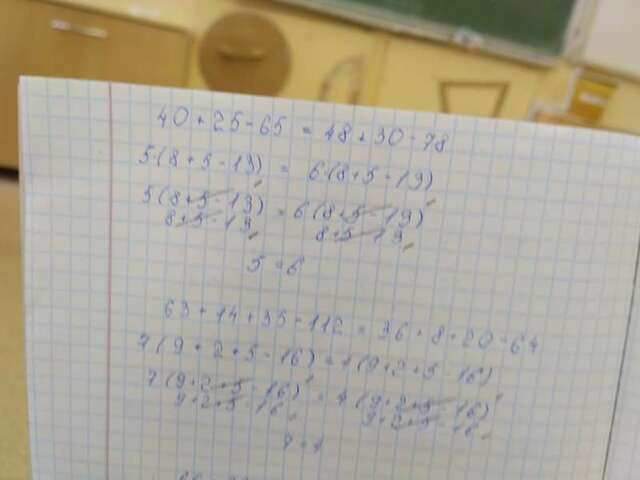 40 + 25 - 65 = 48 + 30 - 78
5·(8 + 5 - 13) = 6·(8 + 5 - 13)
5(8 + 5 - 13) = 6(8 + 5 - 13)
8 + 5 - 13 8 + 5 - 13
5 = 6
63 + 14 + 35 - 112 = 36 + 8 + 20 - 64
7(9 + 2 + 5 - 16) = 4(9 + 2 + 5 - 16)
7(9 + 2 + 5 - 16) = 4(9 + 2 + 5 - 16)
9 + 2 + 5 - 16 9 + 2 + 5 - 16
7 = 4